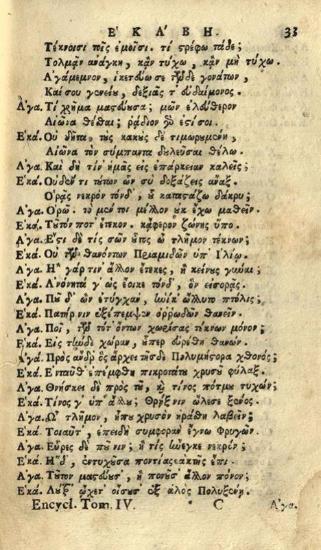 ΕΚΑΒΗ. 33
Τέκνοισι τοῖς ἐμοῖσι. τί στρέφω τάδε;
Τολμᾶν ἀνάγκη, κἂν τύχω, κἂν μὴ τύχω.
Ἀγάμεμνον, ἱκετεύω σε τῶνδε γονάτων,
Καὶ σοῦ γενείου, δεξιᾶς τ' εὐδαίμονος.
Ἀγα. Τί χρῆμα μαστεύουσα; μῶν ἐλεύθερον
Αἰῶνα θέσθαι; ῥᾴδιον γάρ ἐστί σοι.
Ἑκά. Οὐ δῆτα, τοὺς κακοὺς δὲ τιμωρουμένη,
Αἰῶνα τὸν σύμπαντα δουλεῦσαι θέλω.
Ἀγα. Καὶ δὴ τίν' ἡμᾶς εἰς ἐπάρκειαν καλεῖς;
Ἑκά. Οὐδέν τι τούτων ὧν σὺ δοξάζεις ἄναξ.
Ὁρᾷς νεκρὸν τόνδ', οὗ καταστάζω δάκρυ;
Ἀγα. Ὁρῶ. τὸ μέντοι μέλλον οὐκ ἔχω μαθεῖν.
Ἑκά. Τοῦτόν ποτ' ἔτεκον. κἄφερον ζώνης ὕπο.
Ἀγα. Ἔστι δὲ τίς σῶν οὗτος ὦ τλῆμον τέκνων;
Ἑκά. Οὐ τῶν θανόντων Πριαμιδῶν ὑπ' Ἰλίῳ.
Ἀγα. Ἦ γάρ τιν' ἄλλον ἔτεκες, ἢ κείνους γύναι;
Ἑκά. Ἀνόνητά γ' ὡς ἔοικε τόνδ', ὃν εἰσορᾷς.
Ἀγα. Ποῦ δ' ὢν ἐτύγχαν', ἡνίκ' ὤλλυτο πτόλις;
Ἑκά. Πατήρ νιν ἐξέπεμψεν ὀρρωδῶν θανεῖν.
Ἀγα. Ποῖ, τῶν τότ' ὄντων χωρίσας τέκνων μόνον;
Ἑκά. Εἰς τήνδε χώραν, ὗπερ εὑρέθη θανών.
Ἀγά. Πρὸς ἄνδρ' ὃς ἄρχει τῆσδε Πολυμήστορα χθονός;
Ἑκά. Ἐνταῦθ' ἐπέμφθη πικροτάτου χρυσοῦ φύλαξ.
Ἀγα. Θνήσκει δὲ πρὸς τοῦ, καὶ τίνος πότμου τυχών;
Ἑκά. Τίνος γ' ὑπ' ἄλλου; Θρῄξ νιν ὤλεσε ξένος.
Ἀγα. Ὦ τλῆμον, ἦπου χρυσὸν ἠράσθη λαβεῖν;
Ἑκα. Τοιαῦτ', ἐπειδὴ συμφορὰν ἔγνω Φρυγῶν.
Ἀγα. Εὗρες δὲ ποῦ νιν; ἢ τίς ἤνεγκε νεκρόν;
Ἑκά. Ἥδ', ἐντυχοῦσα ποντίας ἀκτῆς ἐπι.
Ἀγα. Τοῦτον μαστεύουσ', ἢ πονοῦσ' ἄλλον πόνον;
Ἑκά. Λούτρ' ᾤχετ' οἴσουσ' ἐξ ἁλὸς Πολυξένῃ.
Encycl. Tom. IV. C Ἀγα.